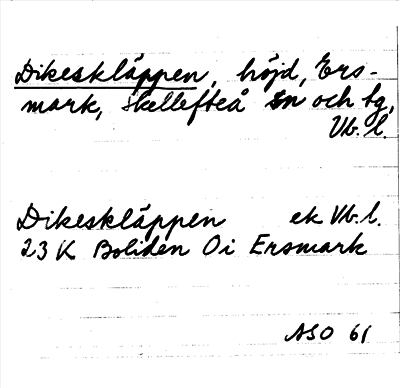 Dikeskläppen, höjd, Ers-
mark, Skellefteå sn och tg,
Vb. l.
Dikeskläppen ek Vb. l.
23 K Boliden O i Ersmark
ASO 61